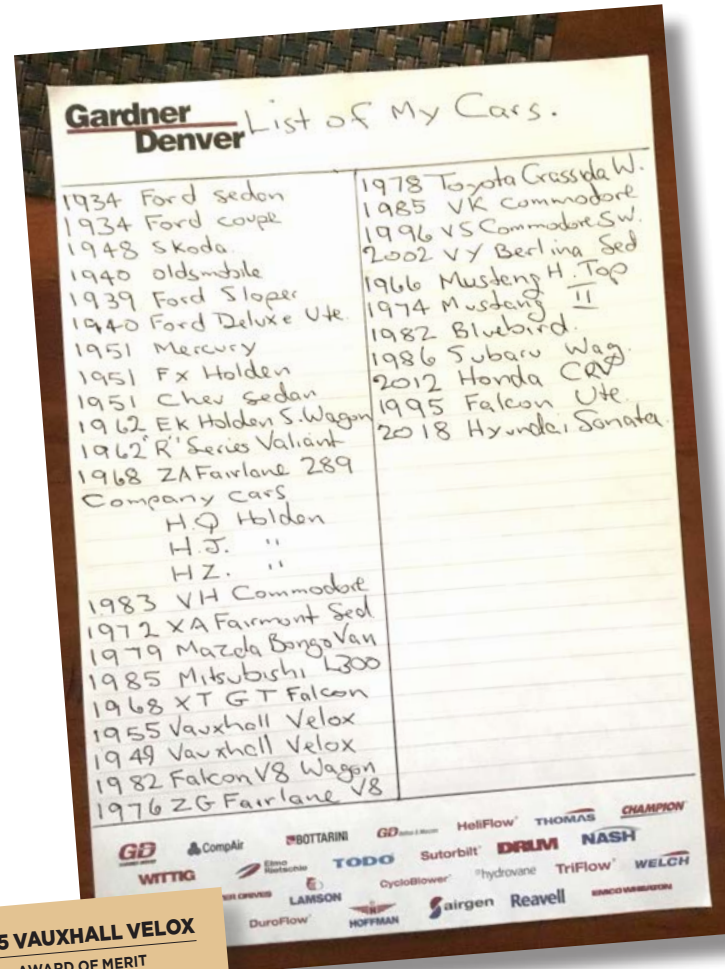 Gardner
Denver
List of My Cars.
1934 Ford sedan
1934 Ford coupe
1948 Skoda
1940 oldsmobile
1939 Ford Sloper
1940 Ford Deluxe Ute.
1951 Mercury
1951 Fx Holden
1951 Chev sedan
1962 EK Holden S.Wagon
1962 "R" Series Valiant
1968 ZA Fairlane 289
Company Cars
H.Q Holden
H.J. "
HZ. "
1983 VH Commodore
1972 XA Fairmont Sed
1979 Mazda Bongo Van
1985 Mitsubishi L300
1968 XT GT Falcon
1955 Vauxhall Velox
1949 Vauxhall Velox
1982 Falcon V8 Wagon
1976 ZG Fairlane V8
1978 Toyota Crassida W.
1985 VK Commodore
1996 VS Commodore S.W.
2002 VY Berlina Sed
1966 Mustang H.Top
1974 Mustang II
1982 Bluebird.
1986 Subaru Wag.
2012 Honda CRV
1995 Falcon Ute.
2018 Hyundai Sonata.
GD CompAir BOTTARINI GD HeliFlow THOMAS CHAMPION
WITTIG Elmo Rietschle TODO Sutorbilt DRUM NASH
ER DRIVES LAMSON CycloBlower hydrovane TriFlow WELCH
DuroFlow HOFFMAN airgen Reavell EMCO WHEATON
5 VAUXHALL VELOX
AWARD OF MERIT